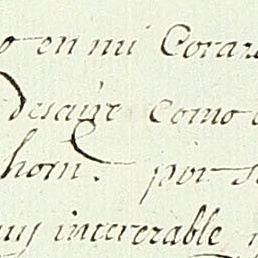 o en mi Coraz
desaire como
hom. por s
uy intererable